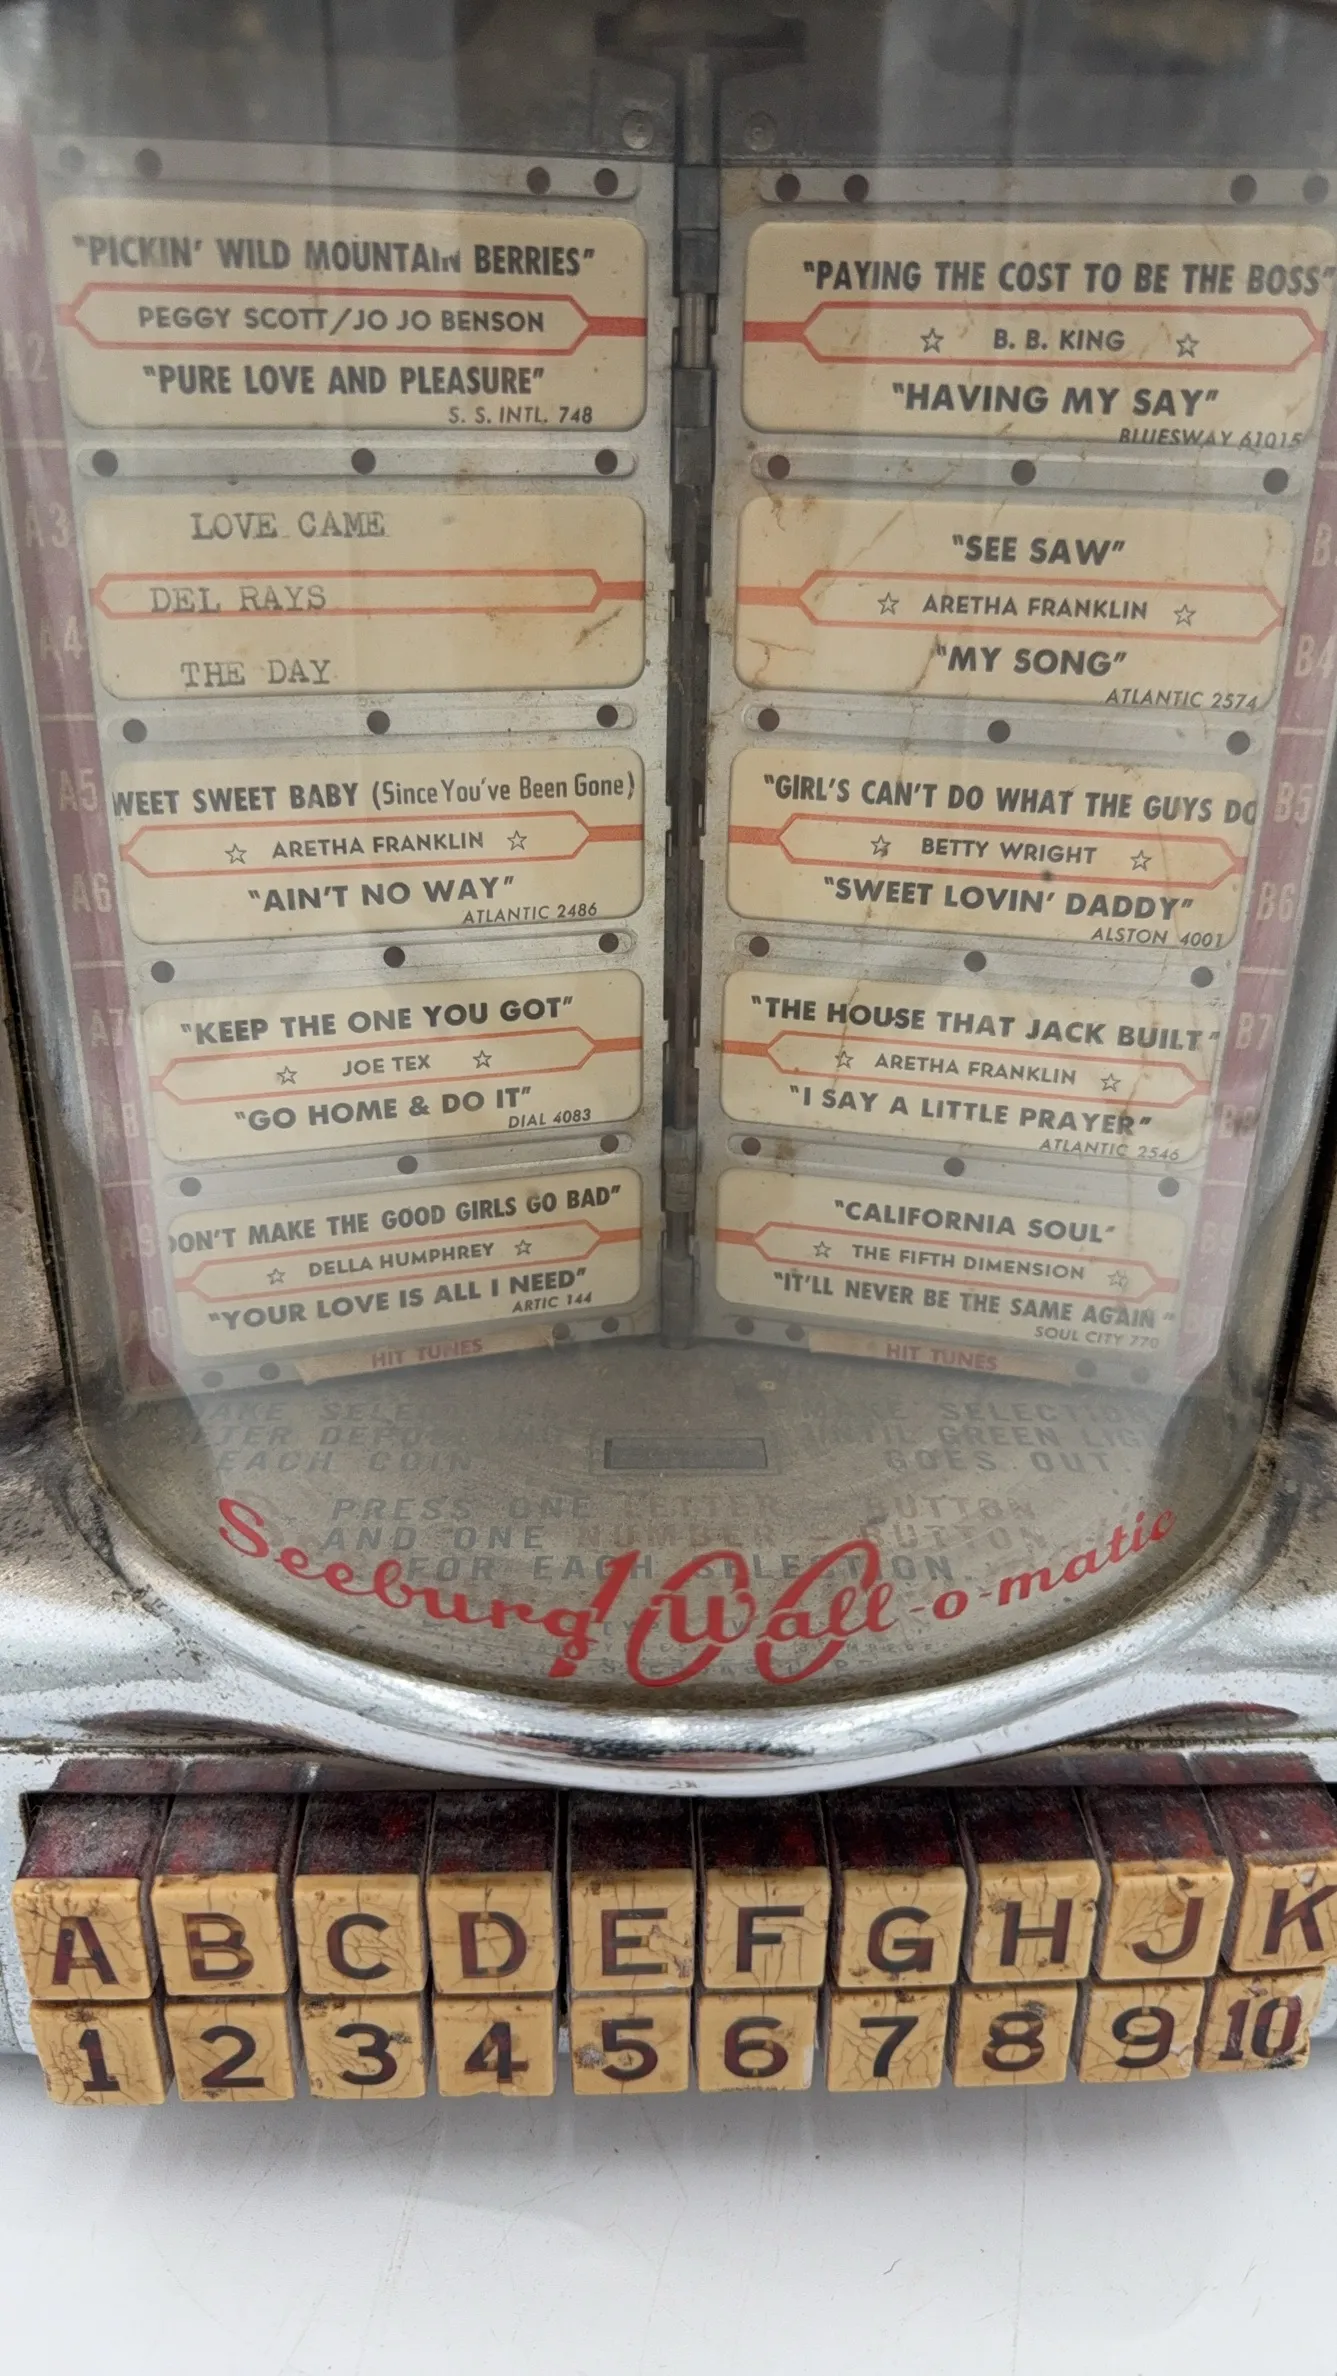 "PICKIN' WILD MOUNTAIN BERRIES"
PEGGY SCOTT/JO JO BENSON
"PURE LOVE AND PLEASURE"
S. S. INTL. 748
A2
LOVE CAME
DEL RAYS
THE DAY
A3
A4
WEET SWEET BABY (Since You've Been Gone)
☆ ARETHA FRANKLIN ☆
"AIN'T NO WAY"
ATLANTIC 2486
A5
A6
"KEEP THE ONE YOU GOT"
☆ JOE TEX ☆
"GO HOME & DO IT"
DIAL 4083
A7
A8
DON'T MAKE THE GOOD GIRLS GO BAD"
☆ DELLA HUMPHREY ☆
"YOUR LOVE IS ALL I NEED"
ARTIC 144
A9
HIT TUNES
"PAYING THE COST TO BE THE BOSS"
☆ B. B. KING ☆
"HAVING MY SAY"
BLUESWAY 61015
"SEE SAW"
☆ ARETHA FRANKLIN ☆
"MY SONG"
ATLANTIC 2574
B4
"GIRL'S CAN'T DO WHAT THE GUYS DO
☆ BETTY WRIGHT ☆
"SWEET LOVIN' DADDY"
ALSTON 4001
B5
B6
"THE HOUSE THAT JACK BUILT"
☆ ARETHA FRANKLIN ☆
"I SAY A LITTLE PRAYER"
ATLANTIC 2546
B7
B8
"CALIFORNIA SOUL"
☆ THE FIFTH DIMENSION ☆
"IT'LL NEVER BE THE SAME AGAIN"
SOUL CITY 770
HIT TUNES
EACH COIN
MAKE SELECTION
UNTIL GREEN LIGHT
GOES OUT.
PRESS ONE LETTER BUTTON
AND ONE NUMBER BUTTON
FOR EACH SELECTION.
Seeburg 100 Wall-o-matic
A B C D E F G H J K
1 2 3 4 5 6 7 8 9 10